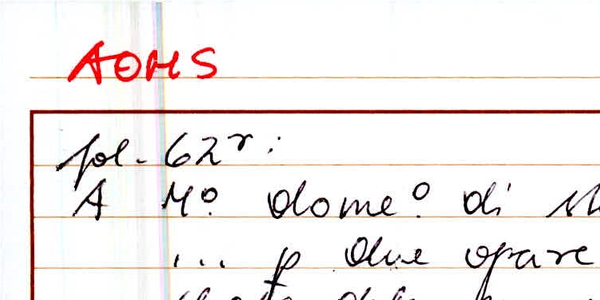 AOMS
fol. 62r:
A Mo domeo di
... p due opare